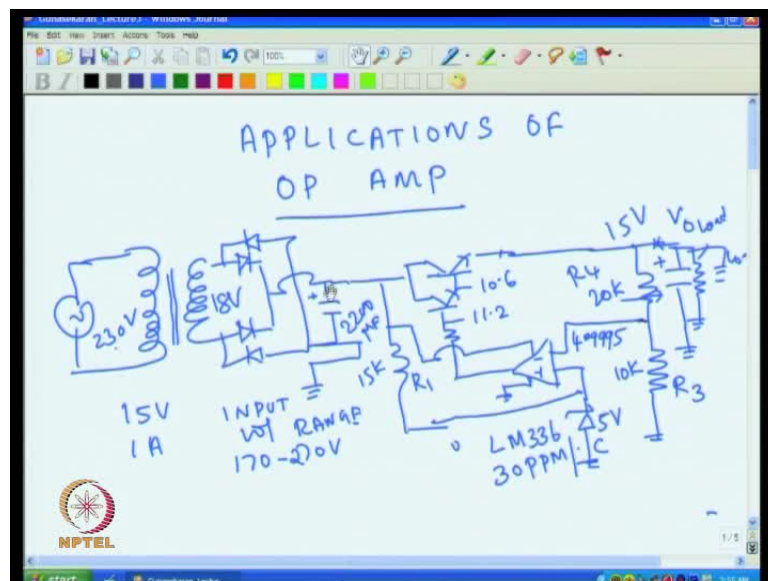 Gunasekaran_Lecture3 - Windows Journal
File Edit View Insert Actions Tools Help
100%
B I
APPLICATIONS OF
OP AMP
15V VO Load
230V
18V
+
2200 MF
10.6
11.2
R4
20K
+
4.9995
15K
R1
-
+
10K
R3
5V
LM336
30PPM/°C
15V
1A
INPUT
W/ RANGE
170-270V
NPTEL
1/5
start